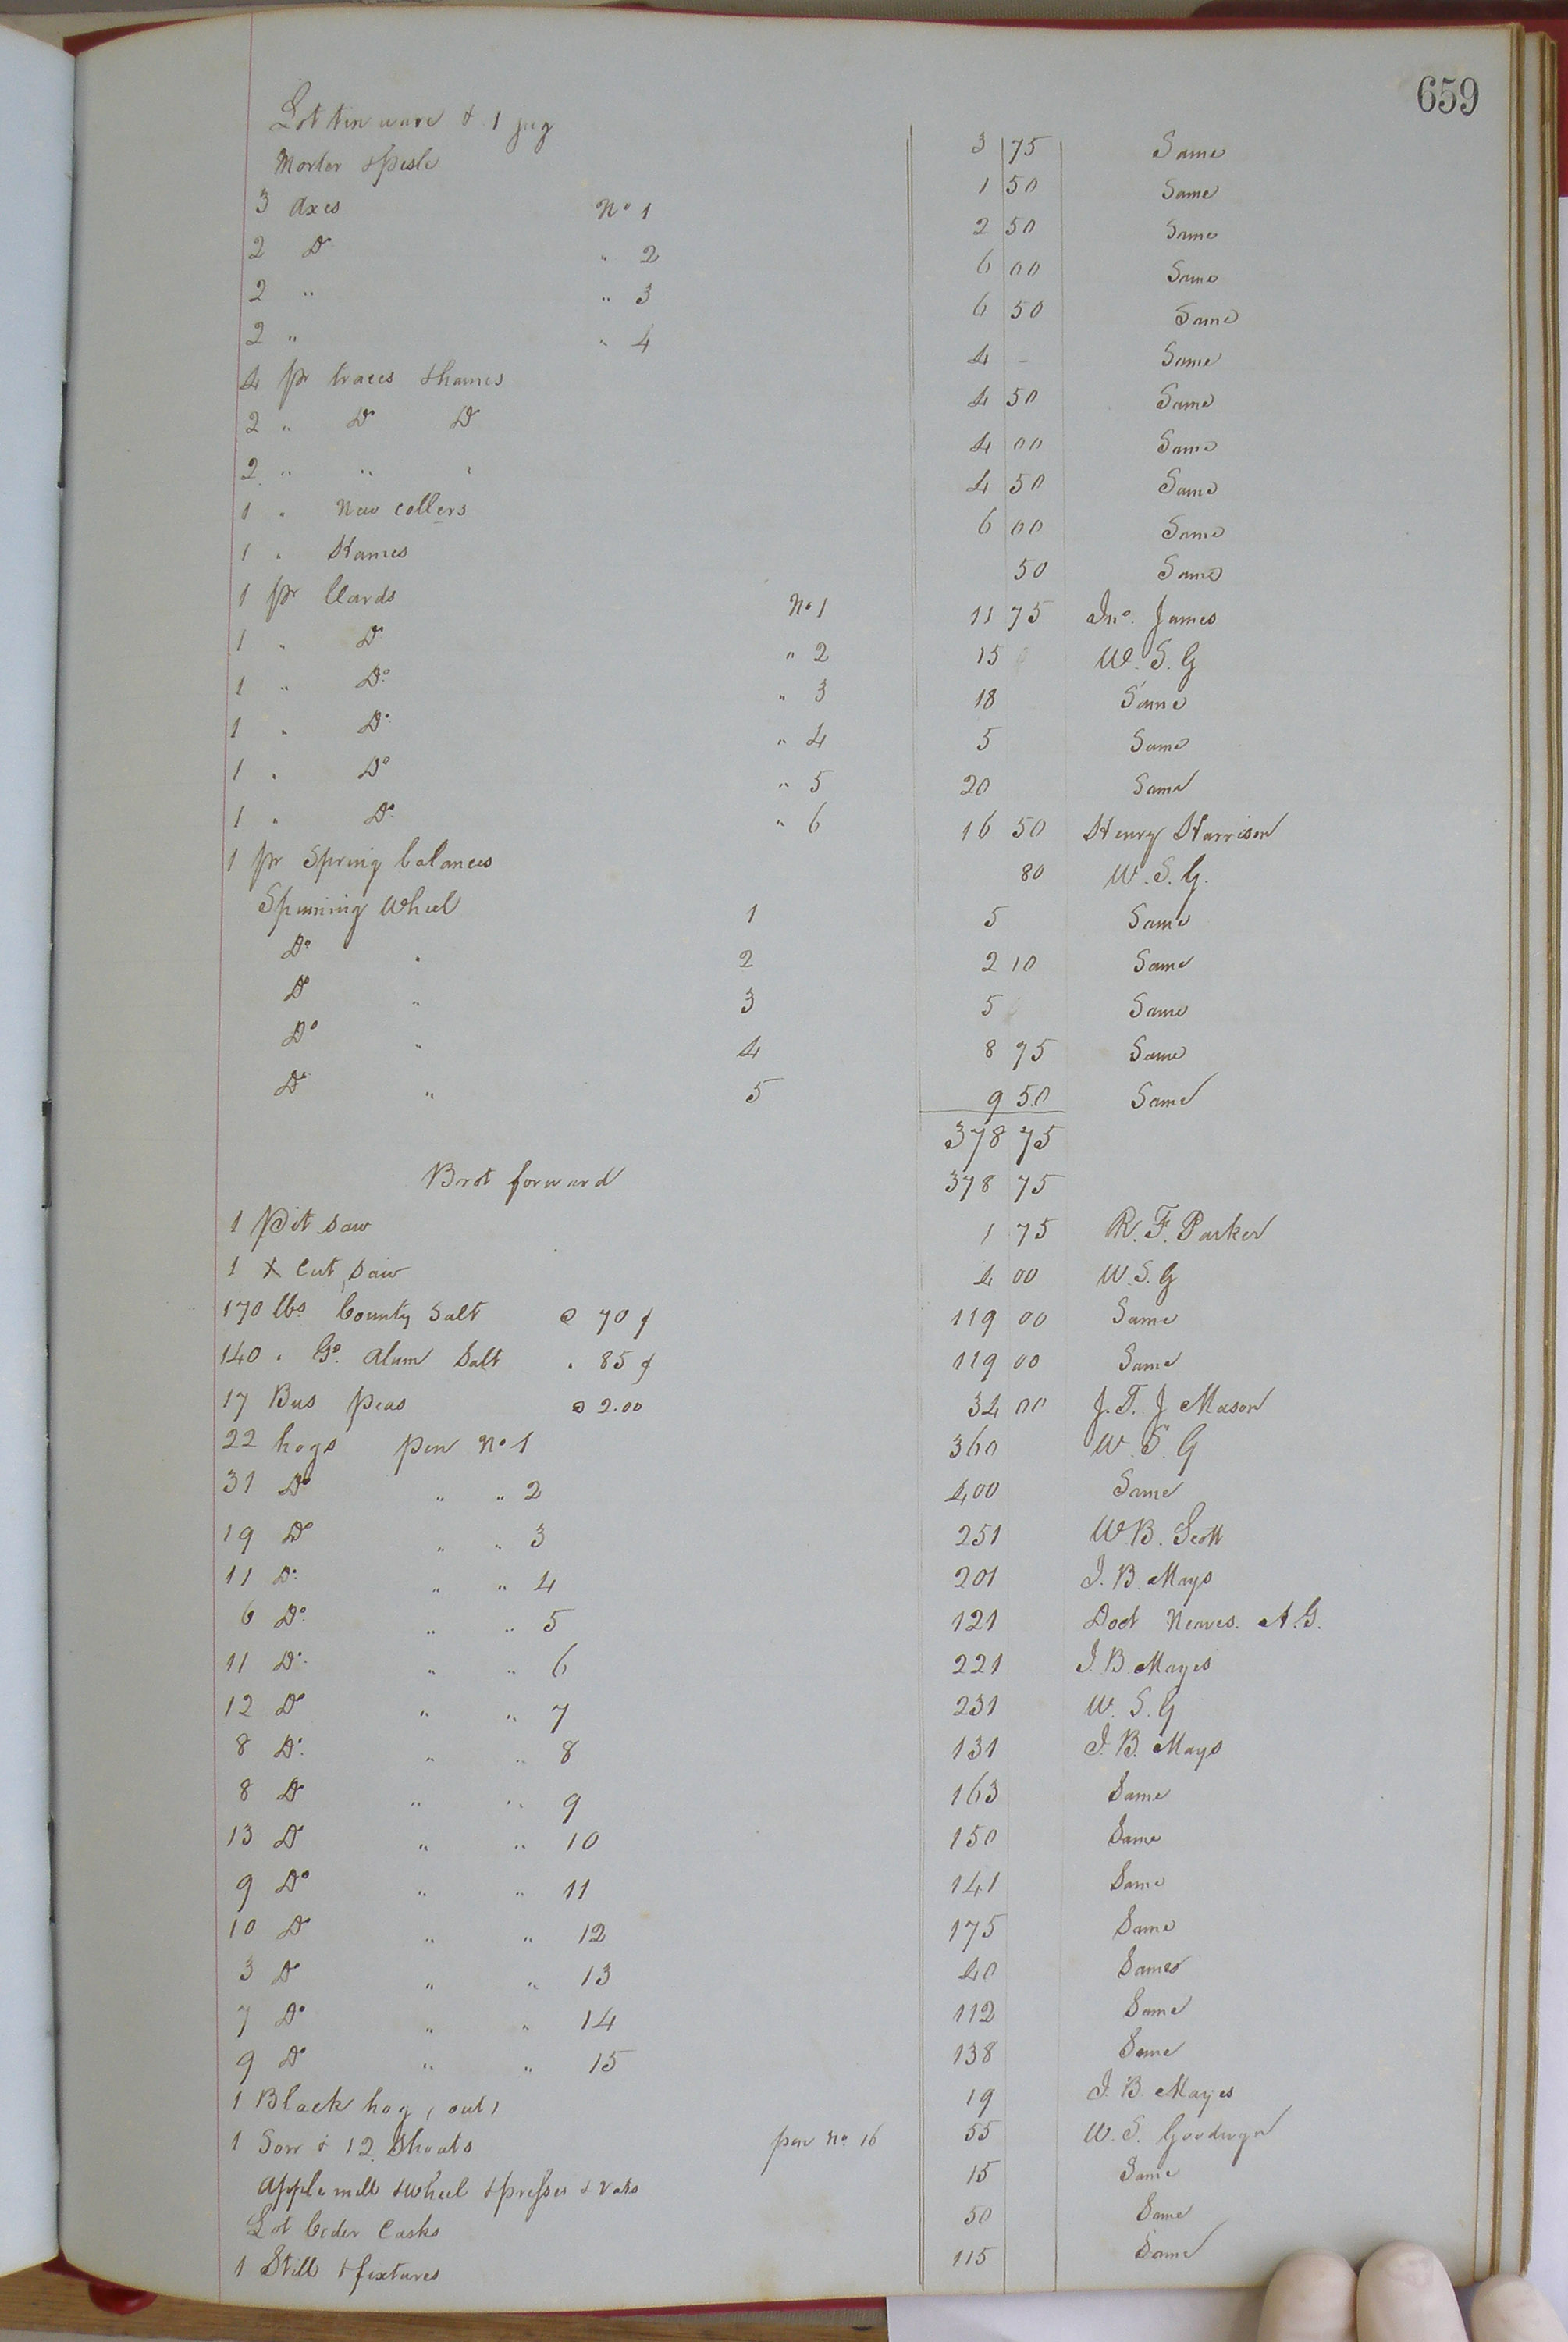 659
Lot tin ware & 1 jug 3 75 Same
Morter & pesle 1 50 Same
3 Axes No 1 2 50 Same
2 Do " 2 6 00 Same
2 " " 3 6 50 Same
2 " " 4 4 - Same
4 pr traces & hames 4 50 Same
2 " Do Do 4 00 Same
2 " " " 4 50 Same
1 " New collers 6 00 Same
1 " Hames 50 Same
1 pr Cards No 1 11 75 Jno. James
1 " Do " 2 15 W. S. G
1 " Do " 3 18 Same
1 " Do " 4 5 Same
1 " Do " 5 20 Same
1 " Do " 6 16 50 Henry Harrison
1 pr Spring balances 80 W. S. G.
Spinning Wheel 1 5 Same
Do " 2 2 10 Same
Do " 3 5 Same
Do " 4 8 75 Same
Do " 5 9 50 Same
378 75
Brot forward 378 75
1 Pit saw 1 75 R. F. Parker
1 X Cut saw 4 00 W. S. G
170 lbs County Salt @ 70 ¢ 119 00 Same
140 " Go. Alum Salt " 85 ¢ 119 00 Same
17 Bus peas @ 2.00 34 00 J. T. J Mason
22 hogs pen No 1 360 W. S. G
31 Do " " 2 400 Same
19 Do " " 3 251 W. B. Scott
11 Do " " 4 201 J. B. Mays
6 Do " " 5 121 Doct Neaves. A. G.
11 Do " " 6 221 J. B. Mayes
12 Do " " 7 231 W. S. G
8 Do " " 8 131 J. B. Mays
8 Do " " 9 163 Same
13 Do " " 10 150 Same
9 Do " " 11 141 Same
10 Do " " 12 175 Same
3 Do " " 13 40 Same
7 Do " " 14 112 Same
9 Do " " 15 138 Same
1 Black hog (out) 19 J. B. Mayes
1 Sow & 12 Shoats pen No 16 55 W. S. Goodwyn
Apple mill & wheel & presses & vats 15 Same
Lot Ceder Casks 50 Same
1 Still & fixtures 115 Same